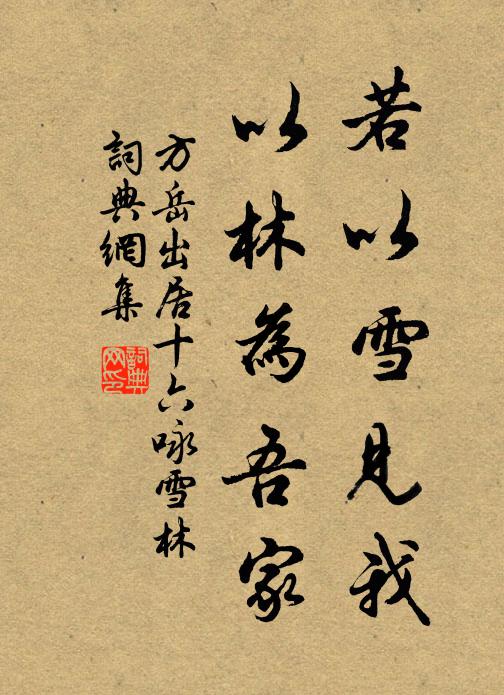 若以雪見我
以林為吾家
方岳出居十六咏雪林
詞典網集
詞典
网印